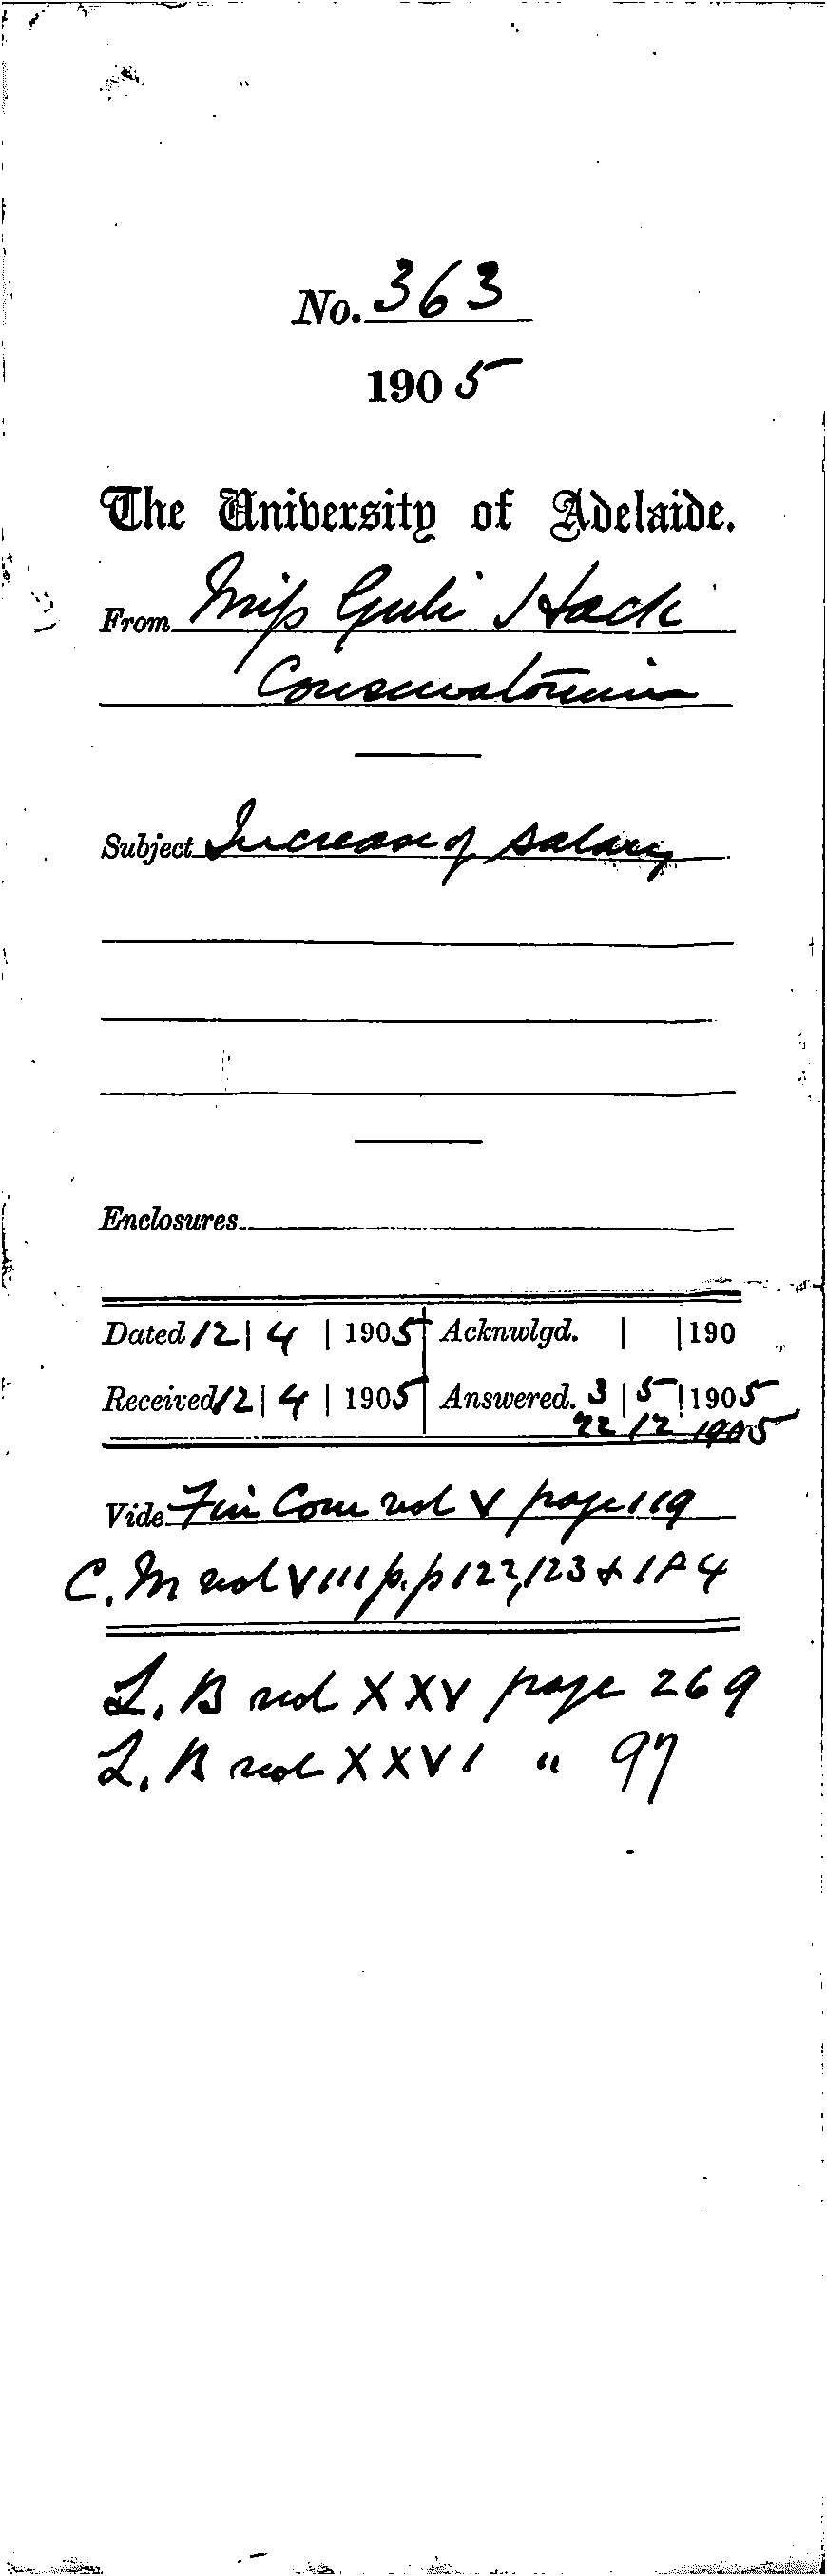 No. 363
1905
The University of Adelaide.
From Miss Guli Hack
Conservatorium
Subject Increase of salary
Enclosures
Dated 12 | 4 | 1905 Acknwlgd. | | 190
Received 12 | 4 | 1905 Answered. 3 | 5 | 1905
22 12 1905
Vide Fin Com vol V page 119
C. M vol VIII p.p 122, 123 & 184
L. B vol XXV page 269
L. B vol XXVI " 97